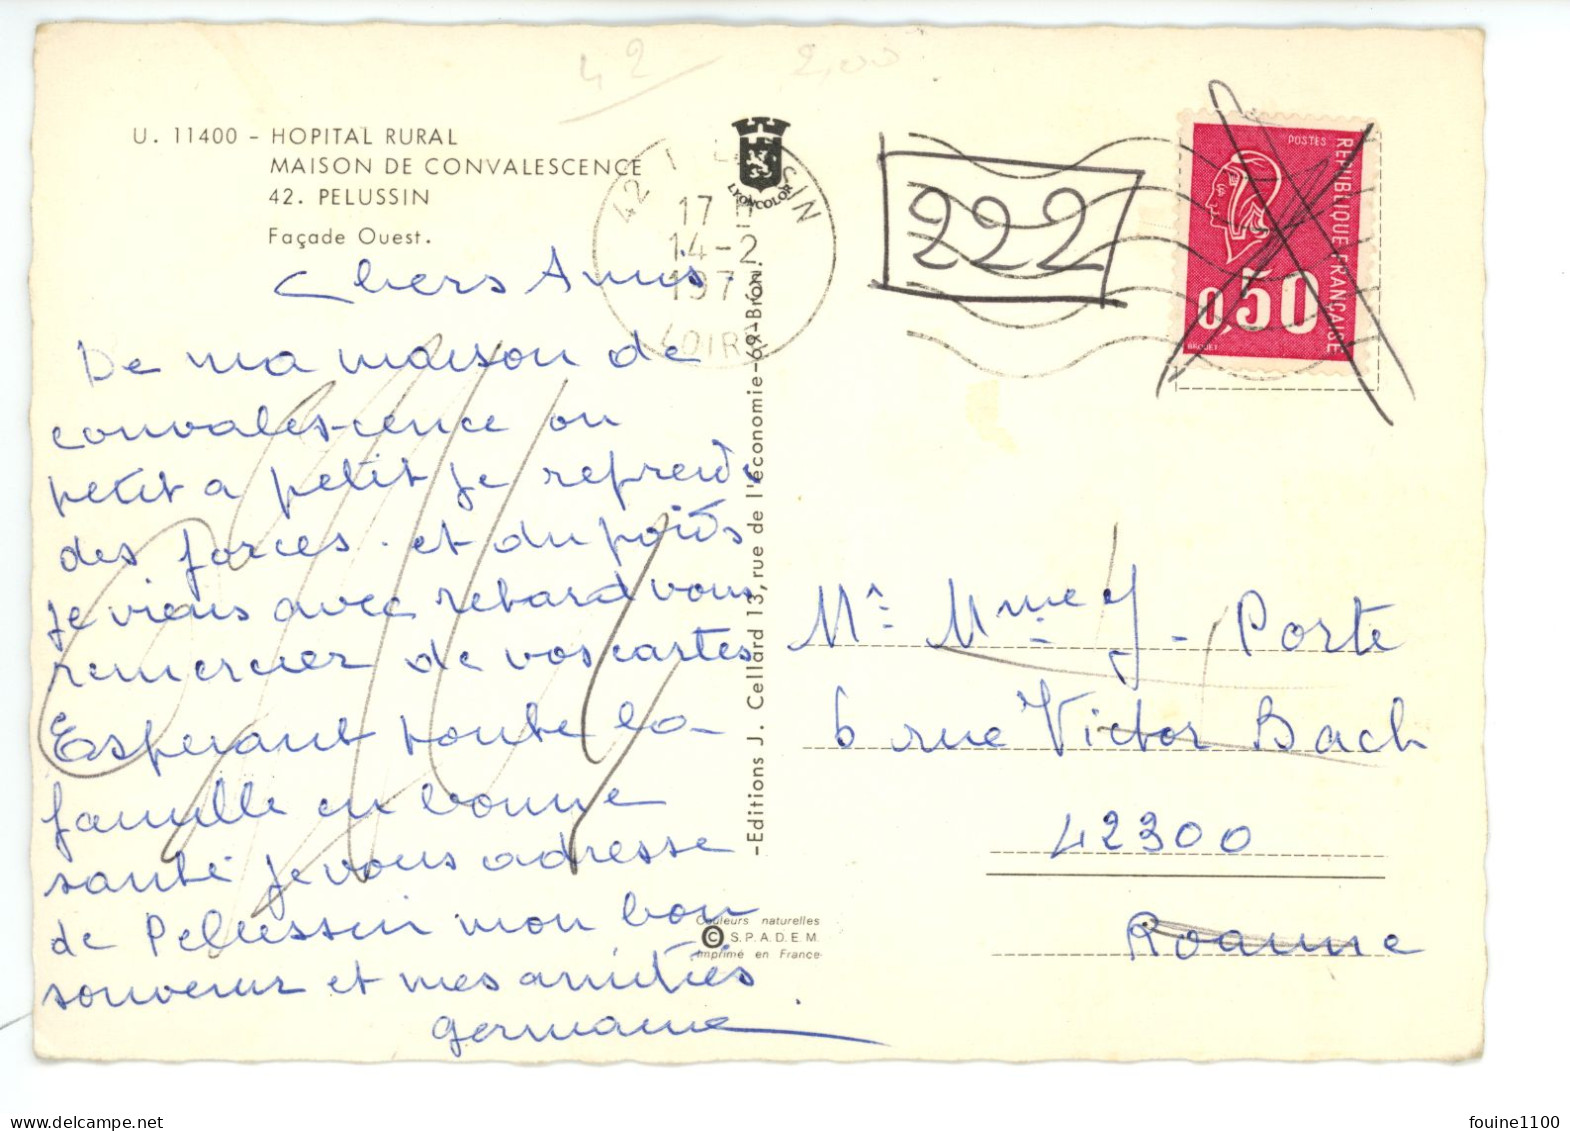 42 2,00
U. 11400 - HOPITAL RURAL
MAISON DE CONVALESCENCE
42. PELUSSIN
Façade Ouest.
LYONCOLOR
17 H
14-2
197
LOIRE
222
POSTES
REPUBLIQUE FRANÇAISE
0,50
BEQUET
Chers Amis
De ma maison de
convalescence ou
petit a petit je reprends
des forces. et du poids
je viens avec retard vous
remercier de vos cartes
Esperant toute la
famille en bonne
santé je vous adresse
de Pelussin mon bon
souvenir et mes amitiés.
germaine
-Editions J. Cellard 13, rue de l'économie-69-Bron.
Couleurs naturelles
© S.P.A.D.E.M.
Imprimé en France
Mr Mme J - Porte
6 rue Victor Bach
42300
Roanne
fouine1100